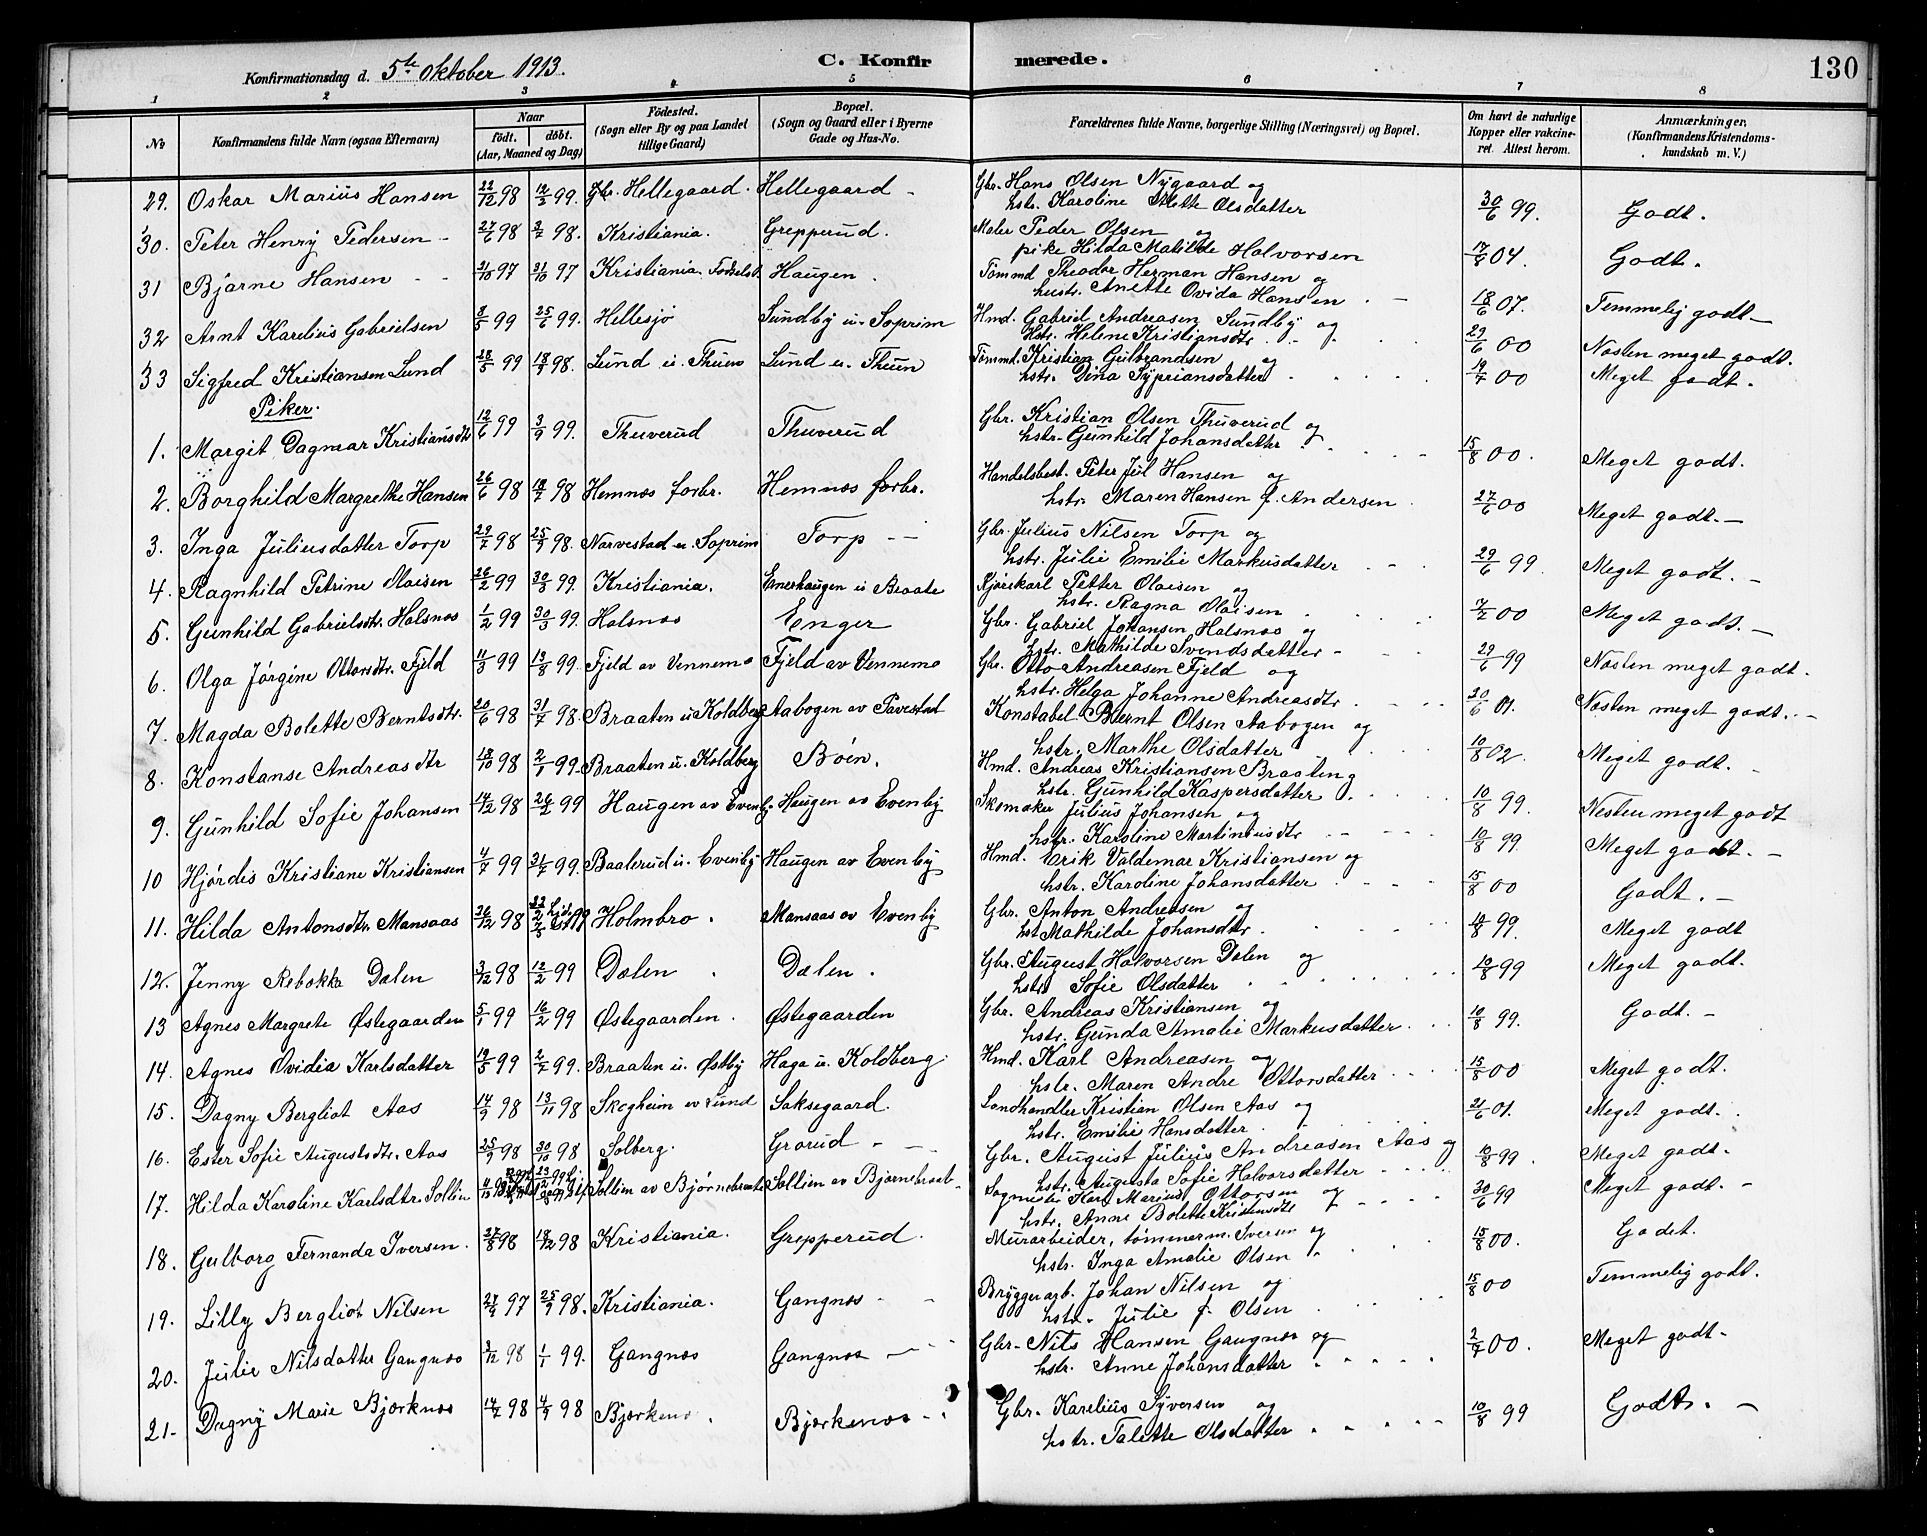 Konfirmationsdag d. 5te Oktober 1913. C. Konfirmerede. 130
1 2 3 4 5 6 7 8
No Konfirmandens fulde Navn (ogsaa Efternavn) Naar født. døbt. (Aar, Maaned og Dag) Fødested. (Sogn eller By og paa Landet tillige Gaard) Bopæl. (Sogn og Gaard eller i Byerne Gade og Hus-No. Forældrenes fulde Navne, borgerlige Stilling (Næringsvei) og Bopæl. Om havt de naturlige Kopper eller vakcineret. Attest herom. Anmærkninger, (Konfirmandens Kristendomskundskab m. V.)
29. Oskar Marius Hansen 22/12 98 12/3 99. Gbr. Hellegaard. Hellegaard - Gbr. Hans Olsen Nygaard og
hstr. Karoline Mette Olsdatter 30/6 99. Godt.
30. Peter Henry Pedersen - 27/6 98 3/7 98. Kristiania. Grepperud. Maler Peder Olsen og
pike Hilda Matilde Halvorsen 17/8 04. Godt.
31 Bjarne Hansen - - 21/10 97 31/10 97 Kristiania Fødselst. Haugen. Tømmd Theodor Herman Hansen og
hustr. Anette Ovida Hansen. - 18/6 07. Temmelig godt -
32 Arnt Karelius Gabrielsen 3/5 99 25/6 99. Hellesjø Sundby u. Soprim Hmd. Gabriel Andreasen Sundby og
hstr. Helene Kristiansdtr. 29/6 00 Næsten meget godt.
33 Sigfred Kristiansen Lund 28/5 99 18/9 98. Lund u. Thuen Lund u. Thuen Tømmd. Kristian Gulbrandsen og
hstr. Dina Sypriansdatter 19/7 00 Meget godt.
Piker.
1. Margit Dagmar Kristiansdtr 12/6 99 3/9 99. Thuverud Thuverud Gbr. Kristian Olsen Thuverud og
hstr. Gunhild Johansdatter 15/8 00. Meget godt.
2. Borghild Margrethe Hansen 26/6 98 18/7 98 Hemnæs forbr. Hemnæs forbr. Handelsbest. Peter Jul Hansen og
hstr. Maren Hansen f. Andersen. 27/6 00 Meget godt. -
3. Inga Juliusdatter Torp 29/7 98 25/9 98. Narvestad u. Soprim Torp - - Gbr. Julius Nilsen Torp og
hstr. Julie Emilie Markusdatter 29/6 99. Meget godt. -
4. Ragnhild Petrine Olaisen 26/2 99 30/3 99. Kristiania. Emerhaugen u Braate Kjørekarl Petter Olaisen og
hstr. Ragna Olaisen 7/7 00 Meget godt. -
5. Gunhild Gabrielsdtr. Halsnæs 1/2 99 30/3 99. Halsnæs Enger Gbr. Gabriel Johansen Halsnæs og
hstr. Mathilde Svendsdatter - 29/6 99 Næsten meget godt.
6. Olga Jørgine Ottorsdtr. Fjeld 11/3 99 13/8 99. Fjeld av Vennemo Fjeld av Vennemo Gbr. Otto Andreasen Fjeld og
hstr. Helga Johanne Andreasdtr 30/6 01. Næsten meget godt. -
7. Magda Bolette Berntsdtr. 20/6 98 31/7 98. Braaten u Koldberg Aabogen av Tavestad Konstabel Bernt Olsen Aabogen og
hstr. Marthe Olsdatter 10/8 02. Meget godt.
8. Konstanse Andreasdtr 18/10 98 2/1 99. Braaten u. Koldberg Bøen. Hmd. Andreas Kristiansen Braaten og
hstr. Gunhild Kaspersdatter. 10/8 99. Næsten meget godt
9. Gunhild Sofie Johansen 14/12 98 26/2 99 Haugen av Evenby Haugen av Evenby Skomaker Julius Johansen og
hstr. Karoline Martiniusdtr. 10/8 99 Meget godt. -
10 Hjørdis Kristiane Kristiansen 4/7 99 31/7 99. Baalerud u. Evenby Haugen av Evenby Hmd. Erik Valdemar Kristiansen og
hstr. Karoline Johansdatter 15/8 00 Godt. -
11. Hilda Antonsdtr. Mansaas 26/12 98 Holmbro. Mansaas av Evenby Gbr. Anton Andreasen og
hst Mathilde Johansdtr. 10/8 99. Meget godt
12. Jenny Rebekka Dælen 3/12 98 12/2 99 Dælen. Dælen. Gbr. August Halvorsen Dælen og
hstr. Sofie Olsdatter 10/8 99 Meget godt.
13 Agnes Margrete Østegaarden 5/1 99 16/2 99 Østegaarden. Østegaarden Gbr. Andreas Kristiansen og
hstr. Gunda Amalie Markusdatter 10/8 99. Godt. -
14. Agnes Ovidia Karlsdatter 19/5 99 2/7 99. Braaten u. Østby Haga u. Koldberg. Hmd. Karl Andreasen og
hstr. Maren Andre Ottorsdatter 15/8 00 Meget godt.
15. Dagny Bergliot Aas 14/9 98 13/11 98 Skogheim av Lund Saksegaard. Landhandler Kristian Olsen Aas og
hstr. Emilie Hansdatter 21/6 01. Meget godt.
16. Ester Sofie Augustsdtr. Aas 25/9 98 30/10 98 Solberg. Grorud - - Gbr. August Julius Andreasen Aas og
hstr. Augusta Sofie Halvorsdatter 10/8 99. Meget godt.
17. Hilda Karoline Karlsdtr. Sollien Sollien av Bjørnebraaten Sollien av Bjørnebraat- Sogmester Karl Marius Ottorsen og
hstr. Anne Bolette Kristensdtr 30/6 99 Meget godt. -
18. Gulborg Fernanda Iversen. 27/8 98 18/12 98 Kristiania. Grepperud. Murarbeider, tømmerm. Iversen og
hstr. Inga Amalie Olsen 15/8 00. Godt.
19. Lilly Bergliot Nilsen 27/9 97 25/9 98. Kristiania. Gangnæs - - Bryggerarb. Johan Nilsen og
hstr. Julie f. Olsen 15/8 00 Temmelig godt.
20. Julie Nilsdatter Gangnæs 3/12 98 1/1 99. Gangnæs Gangnæs - Gbr. Nils Hansen Gangnæs og
hstr. Anne Johansdatter 2/7 00. Meget godt.
21. Dagny Marie Bjørknæs 14/7 98 4/9 98 Bjørkenæs. Bjørkenæs - Gbr. Karelius Syversen og
hstr. Talette Olsdatter 10/8 99 Godt. -